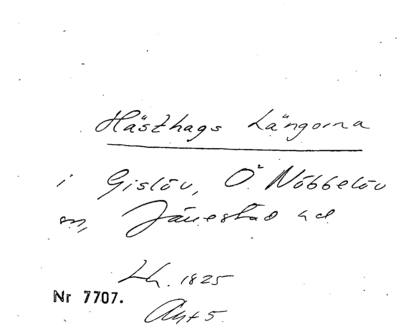 Hästhags Längorna
i Gislöv, Ö Nöbbelöv
m, Järrestad hd
Lh. 1825
Nr 7707.